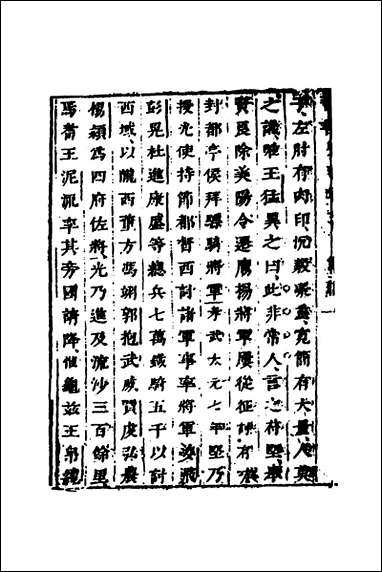 字左肘有肉印沉毅凝重寬簡有大量人莫
之識唯王猛異之曰此非常人言之苻堅舉
賢良除美陽令遷鷹揚將軍屢從征伐有功
封都亭侯拜驍騎將軍孝武太元七年堅乃
授光使持節都督西討諸軍事率將軍姜飛
彭晃杜進康盛等總兵七萬鐵騎五千以討
西域以隴西董方馮翊郭抱武威賈虔弘農
楊穎爲四府佐將光乃進及流沙三百餘里
焉耆王泥流率其旁國請降惟龜茲王帛純